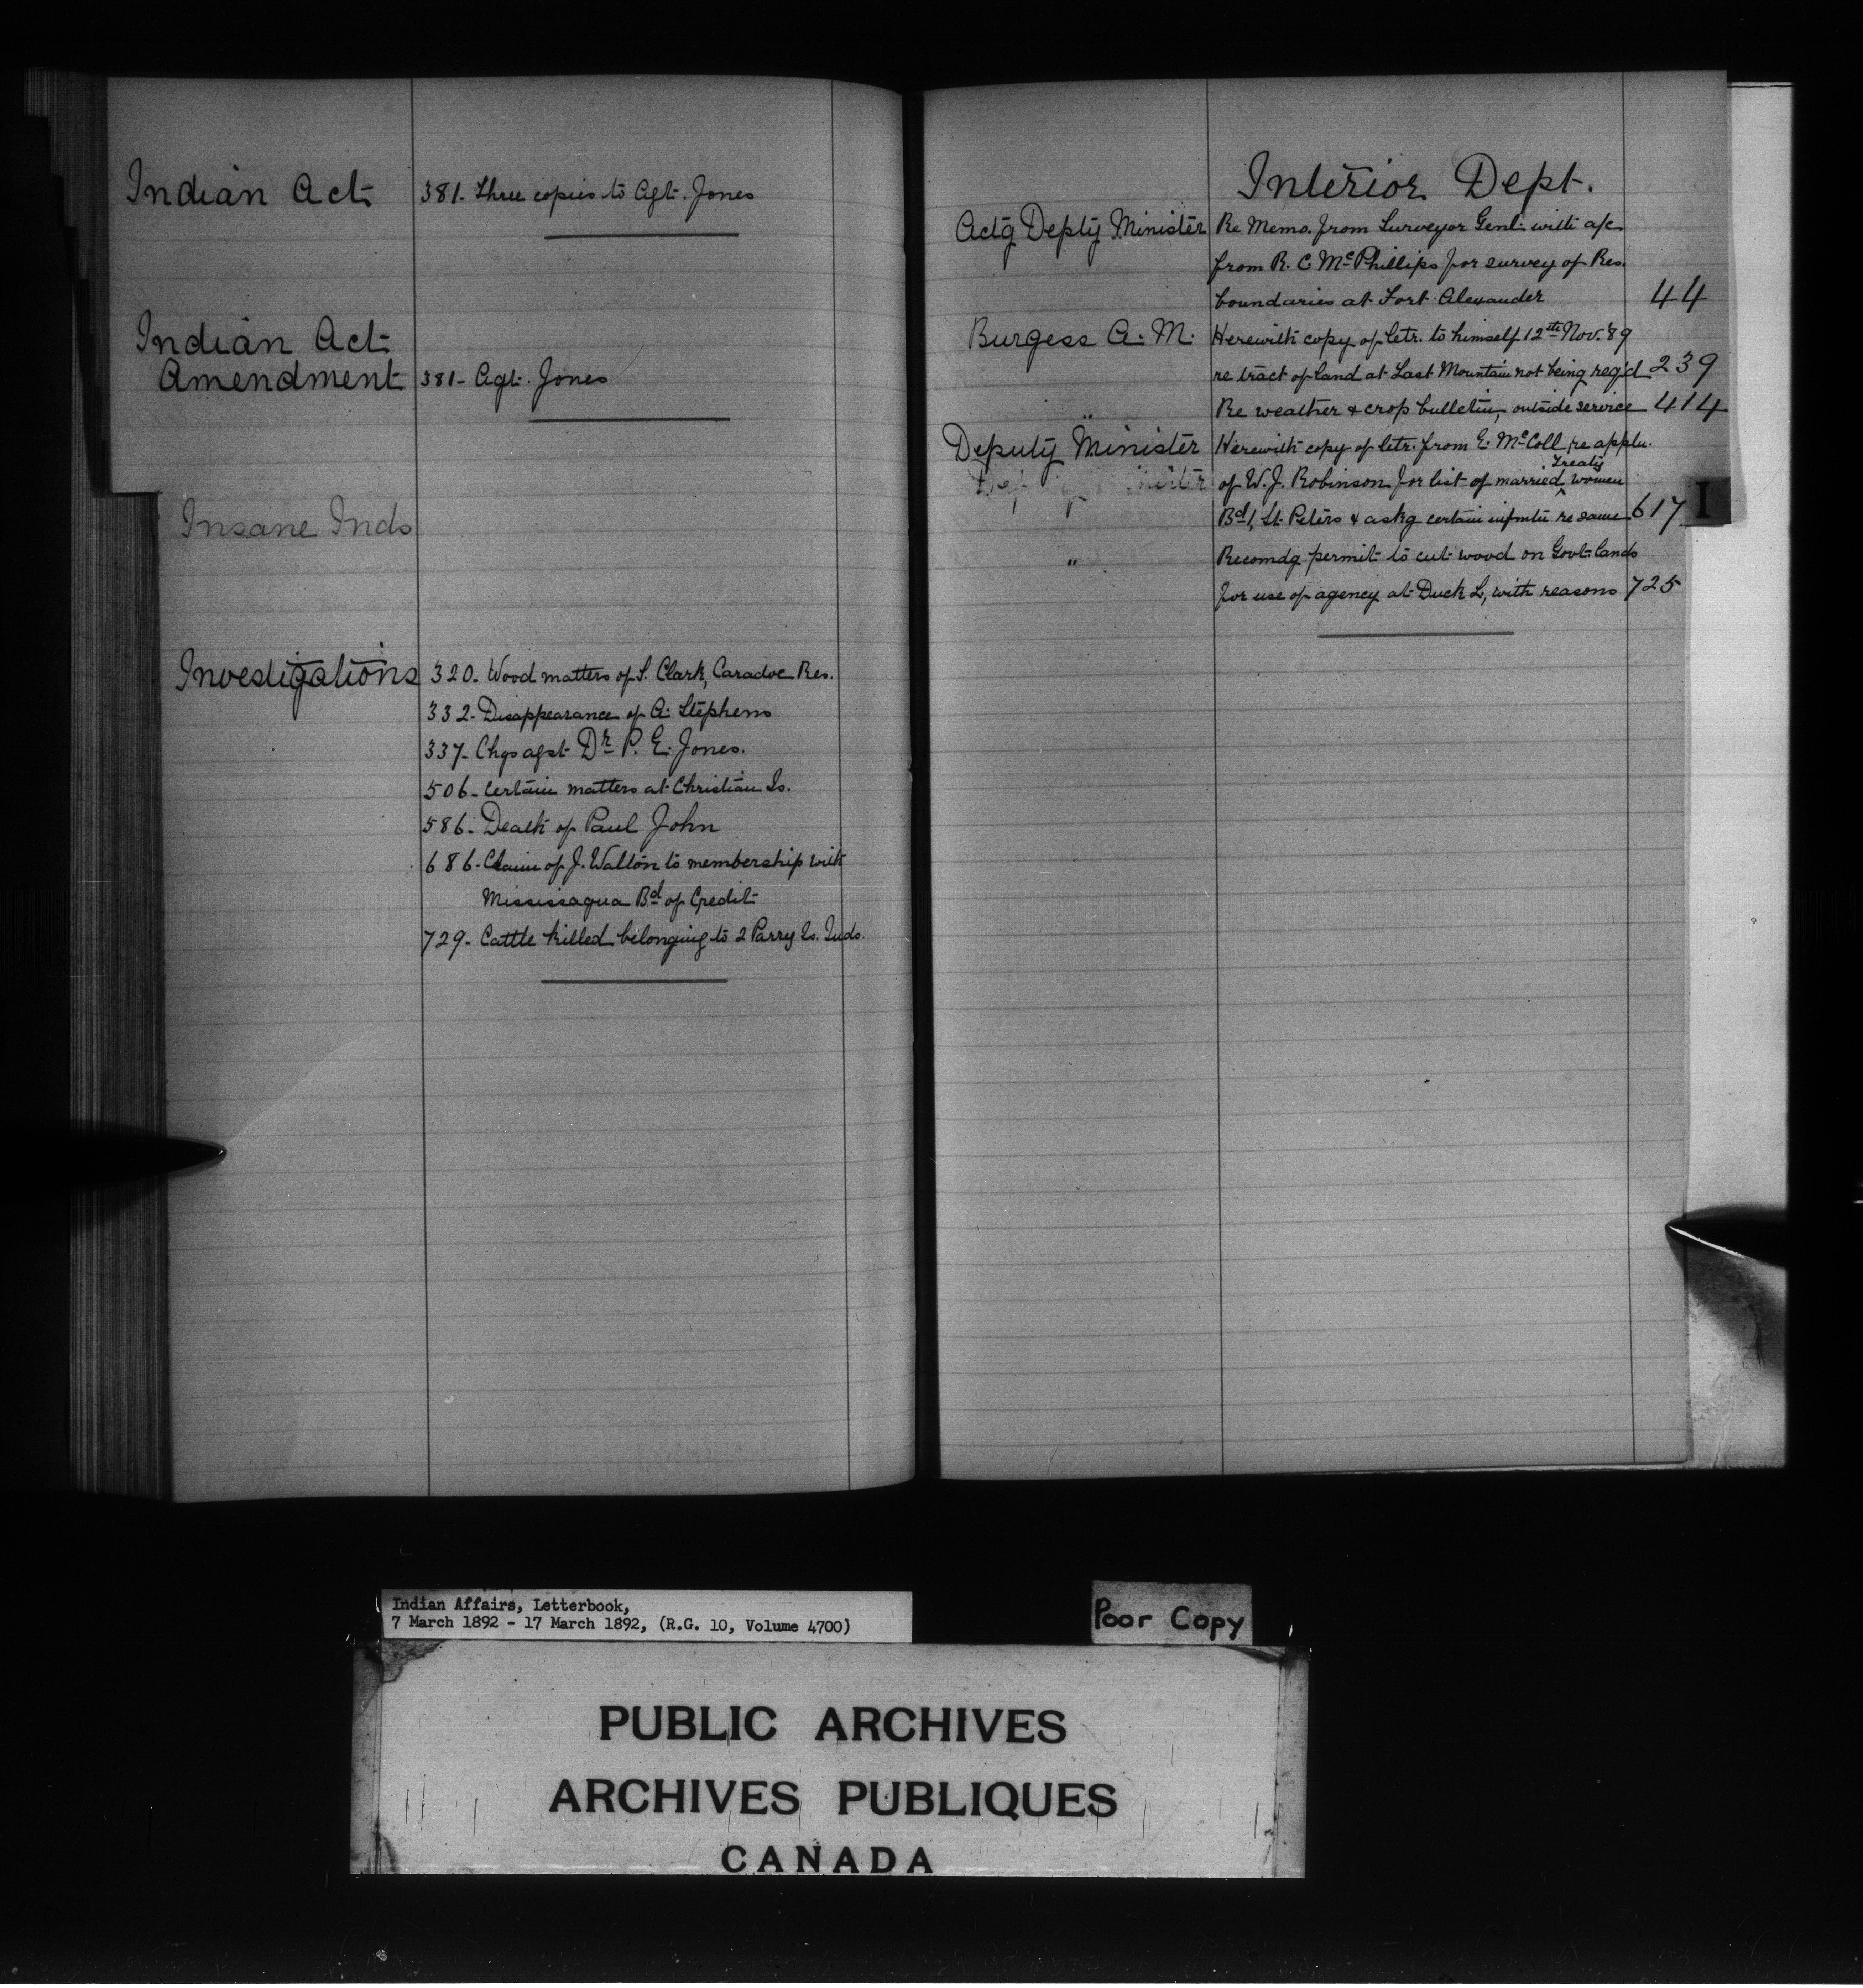 Indian Act 381. Three copies to Agt. Jones
Indian Act
Amendment 381- Agt. Jones
Insane Inds
Investigations 320. Wood matters of S. Clark, Caradoc Res.
332- Disappearance of A. Stephens
337- Chgs agst Dr. P. E. Jones.
506- Certain matters at Christian Is.
586. Death of Paul John
686. Claim of J. Walton to membership with
Mississagua Bd of Credit
729- Cattle killed belonging to 2 Parry Is. Inds.
Interior Dept.
Actg Depty Minister Re Memo. from Surveyor Genl. with a/c
from R. C. McPhillips for survey of Res.
boundaries at Fort Alexander 44
Burgess A. M. Herewith copy of letr. to himself 12th Nov. '89
re tract of land at Last Mountain not being reg'd 239
" Re weather & crop bulletin, outside service 414
Deputy Minister Herewith copy of letr. from E. McColl, re appln.
of W. J. Robinson for list of married Treaty women
Bd 1, St. Peters & askg certain infmtn re same 617
I
" Recomdg permit to cut wood on Govt. lands
for use of agency at Duck L, with reasons 725
Indian Affairs, Letterbook,
7 March 1892 - 17 March 1892, (R.G. 10, Volume 4700)
Poor Copy
PUBLIC ARCHIVES
ARCHIVES PUBLIQUES
CANADA